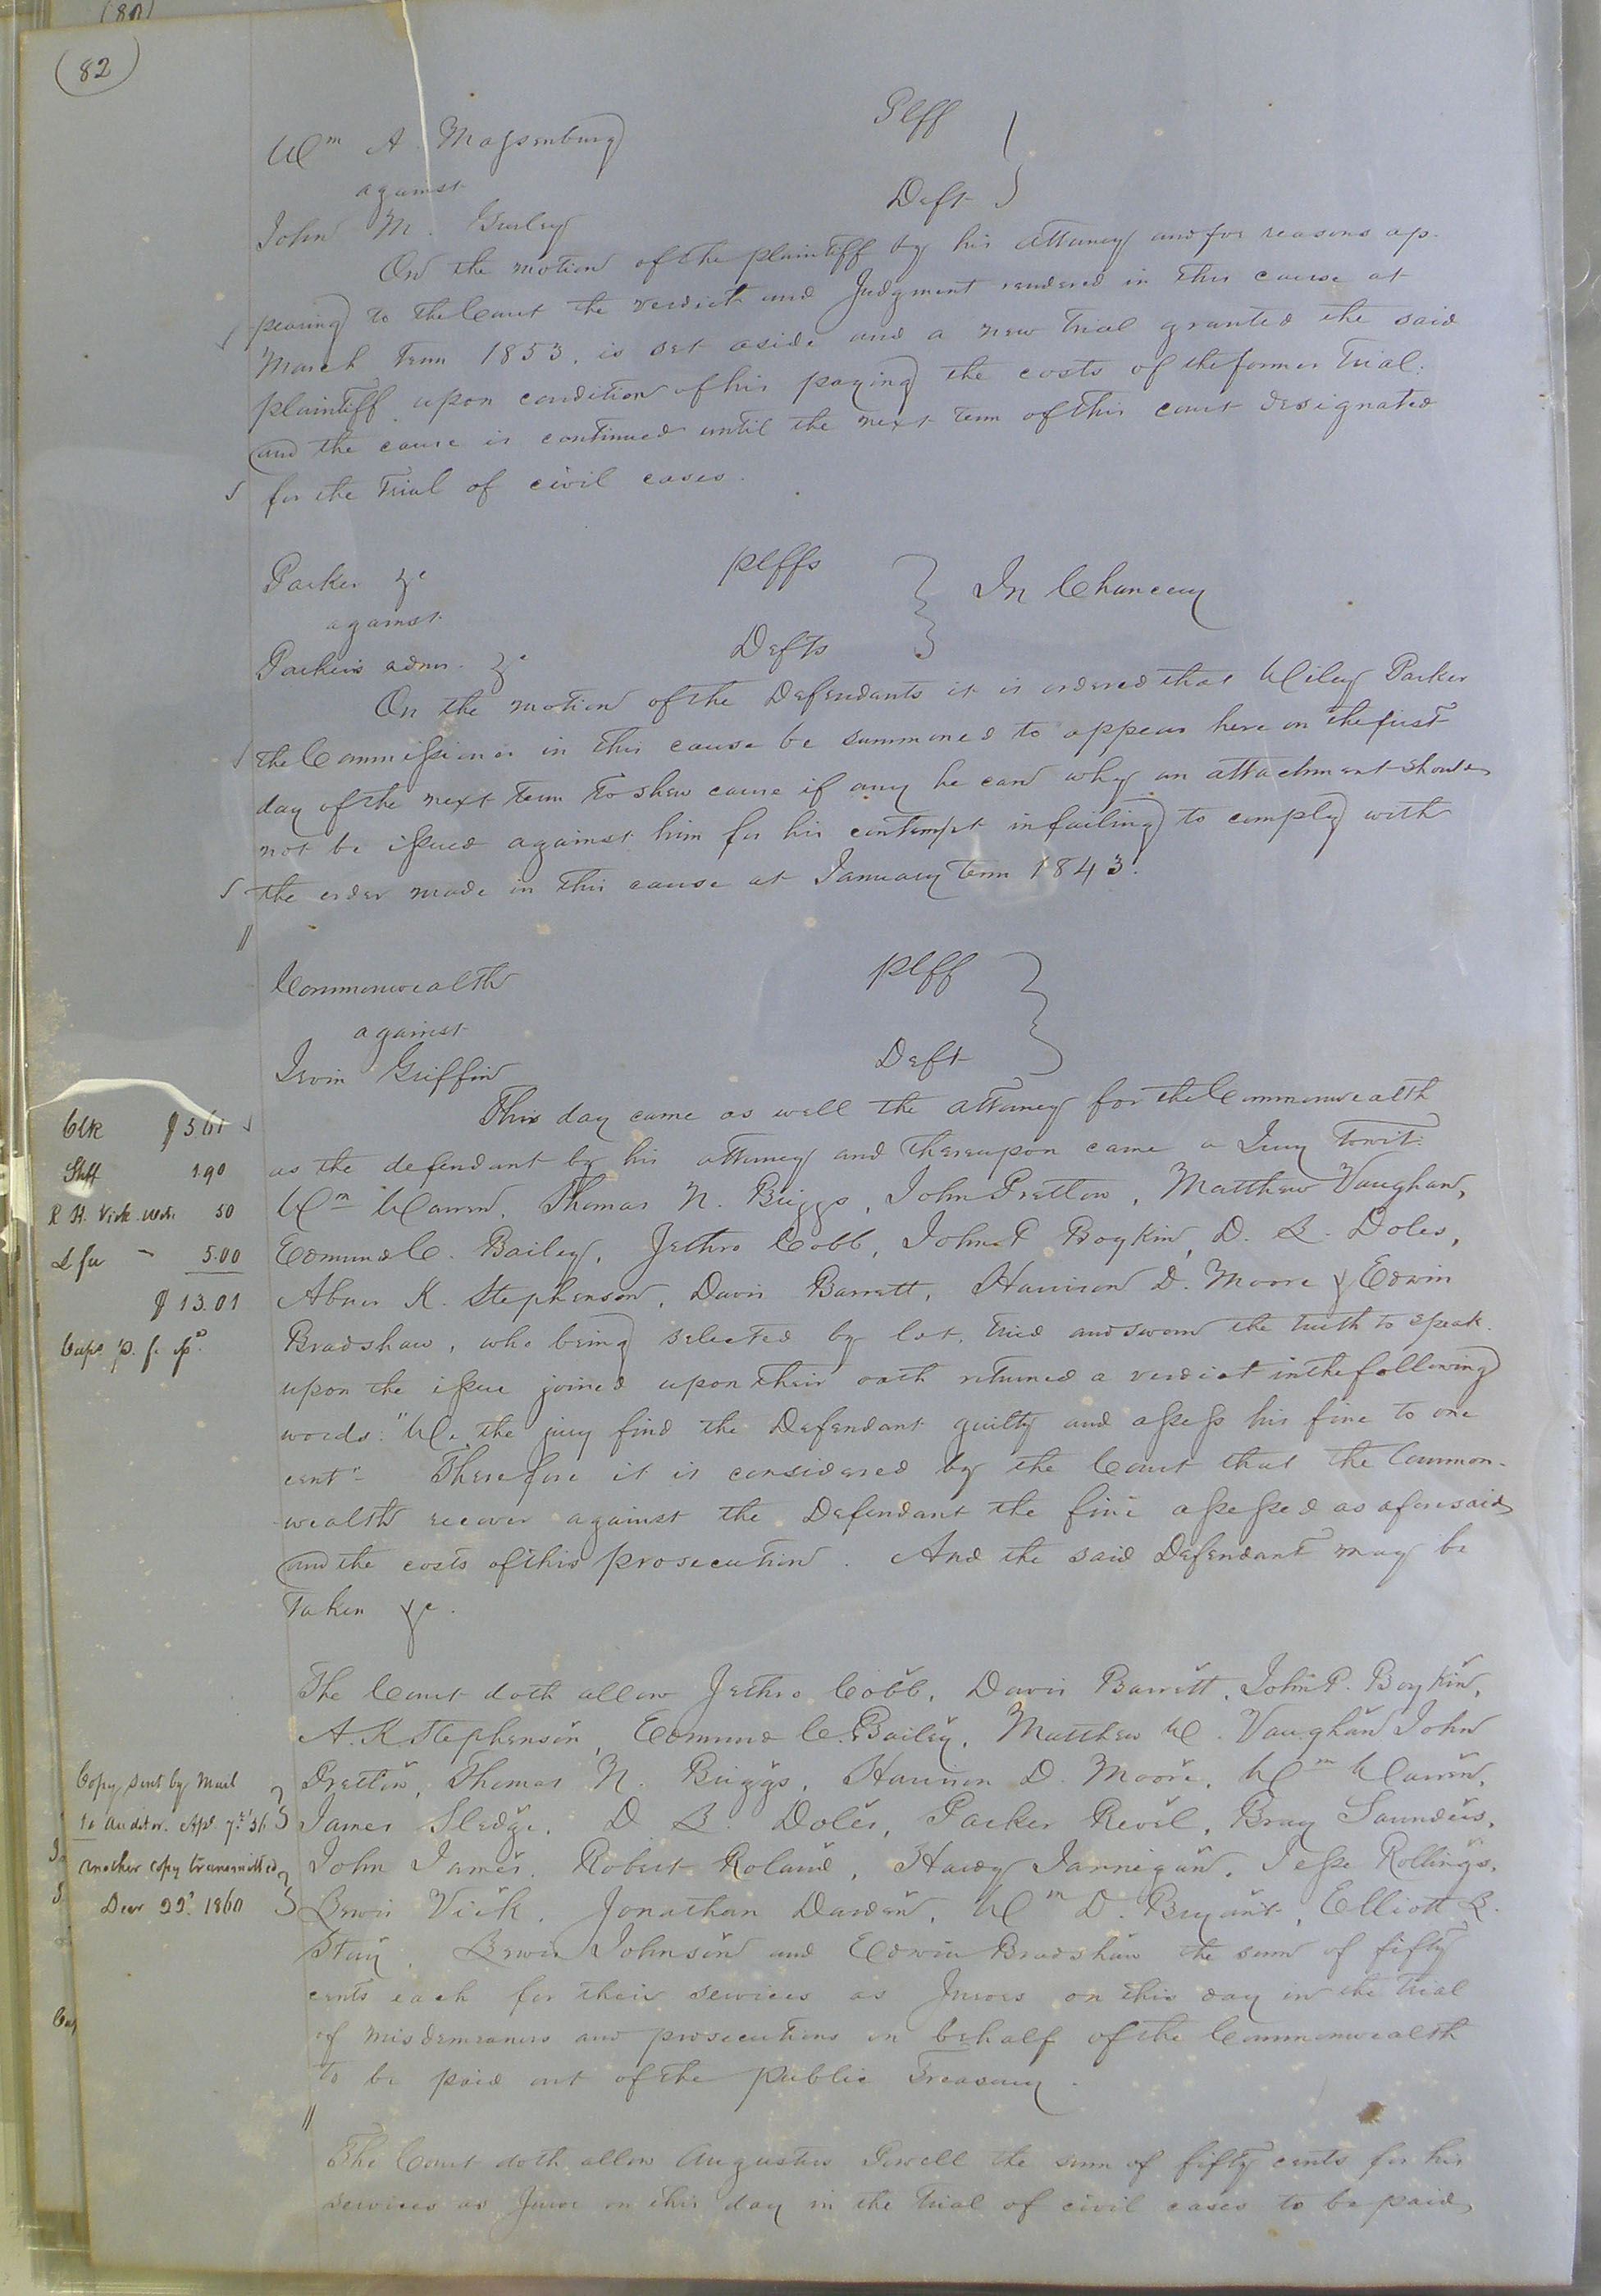 (80)
(82)
Plff
Wm A. Massenburg
against
Deft
John M. Gurley
On the motion of the plaintiff by his attorney and for reasons ap-
pearing to the Court the verdict and Judgment rendered in this cause at
March Term 1853, is set aside and a new trial granted the said
plaintiff upon condition of his paying the costs of the former trial.
and the cause is continued until the next term of this court designated
for the trial of civil cases.
Parker &c plffs
against In Chancery
Parker's admr. &c Defts
On the motion of the Defendants it is ordered that Wiley Parker
the Commissioner in this cause be summoned to appear here on the first
day of the next term to shew cause if any he can why an attachment should
not be issued against him for his contempt in failing to comply with
the order made in this cause at January Term 1843.
Commonwealth plff
against
Irvin Griffin Deft
This day came as well the attorney for the Commonwealth
as the defendant by his attorney and thereupon came a Jury towit:
Wm Warren, Thomas N. Briggs, John Pretlow, Matthew Vaughan,
Edmund C. Bailey, Jethro Cobb, John P Boykin, D. B. Doles,
Abner K. Stephenson, Davis Barrett, Harrison D. Moore & Edwin
Bradshaw, who being selected by lot, tried and sworn the truth to speak
upon the issue joined upon their oath returned a verdict in the following
words: "We the jury find the Defendant guilty and assess his fine to one
cent" Therefore it is considered by the Court that the Common-
wealth recover against the Defendant the fine assessed as aforesaid
and the costs of this prosecution. And the said Defendant may be
taken &c.
Clk $5.61
Shff 1.90
R H. Vick wit. 50
L fee - 5.00
$13.01
The Court doth allow Jethro Cobb, Davis Barrett, John P. Boykin,
A. K Stephenson, Edmund C. Bailey, Matthew W. Vaughan John
Pretlow, Thomas N. Briggs, Harrison D. Moore, Wm Warren,
James Sledge, D B. Doles, Parker Revel, Bray Saunders,
John James, Robert Roland, Hardy Jarnigan, Jesse Rollings,
Vick, Jonathan Darden, Wm D. Bryant, Elliott B.
Johnson and Edwin Bradshaw the sum of fifty
cents each for their services as Jurors on this day in the trial
of misdemeanors and prosecutions in behalf of the Commonwealth
to be paid out of the public Treasury.
Copy sent by mail
to auditor. Apl. 7th 56
another copy transmitted
Decr 22d. 1860
The Court doth allow Augustus Sewell the sum of fifty cents for his
services as Juror on this day in the trial of civil cases to be paid